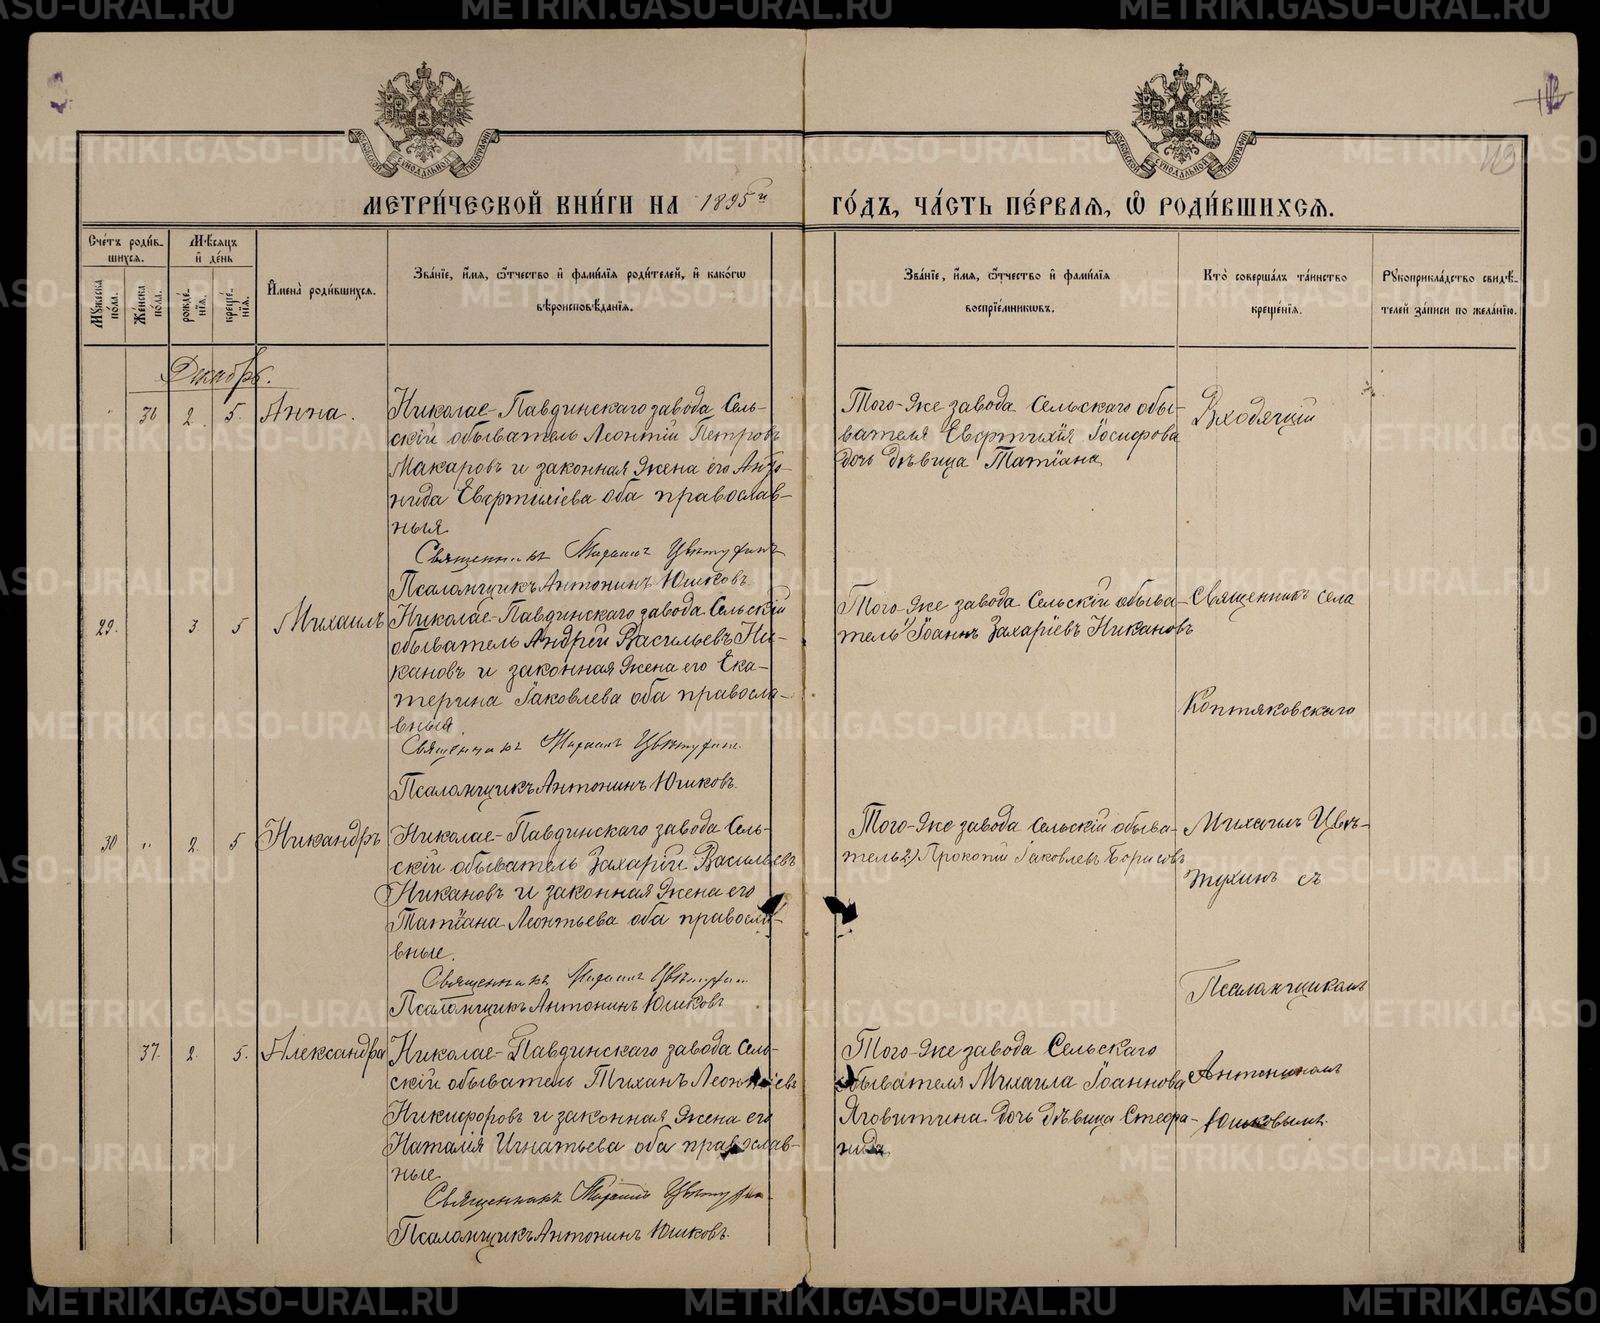 METRIKI.GASO-URAL.RU
МЕТРИ́ЧЕСКОЙ КНИ́ГИ НА 1895й ГО́ДЪ, ЧА́СТЬ ПЕ́РВАЯ, Ѡ РОДИ́ВШИХСЯ.
Сче́тъ роди́в-
шихся.
Мѣ́сяцъ
и де́нь
Му́жеска по́ла.
Же́нска по́ла.
рожде́нїя.
креще́нїя.
И́мена роди́вшихся.
Зва́нїе, и́мя, ѻ́тчество и фами́лїя роди́телей, и како́гѡ
вѣроисповѣ́данїя.
Зва́нїе, и́мя, ѻ́тчество и фами́лїя
воспрїе́мникѡвъ.
Кто̀ соверша́лъ та́инство
креще́нїя.
Рукоприкла́дство свидѣ́-
телей за́писи по жела́нїю.
Декабрь.
36 2. 5. Анна.
Николае-Павдинскаго завода Сель-
скій обыватель Леонтій Петровъ
Макаровъ и законная жена его Анто-
нида Евстихіева оба православ-
ныя
Священникъ Михаилъ Цвѣтухинъ
Псаломщикъ Антонинъ Юшковъ
Того-же завода Сельскаго обы-
вателя Евстихія Іосифова
дочь дѣвица Татіана
29. 3. 5 Михаилъ
Николае-Павдинскаго завода Сельскій
обыватель Андрей Васильевъ Ни-
кановъ и законная жена его Ека-
терина Іаковлева оба правосла-
вныя.
Священникъ Михаилъ Цвѣтухин.
Псаломщикъ Антонинъ Юшковъ.
Того-же завода Сельскій обыва-
тель 1) Іоаннъ Захаріевъ Никановъ
30 " 2. 5 Никандръ
Николае-Павдинскаго завода Сель-
скій обыватель Захарій Васильевъ
Никановъ и законная жена его
Татіана Леонтьева оба правосла-
вные.
Священникъ Михаилъ Цвѣтухин
Псаломщикъ Антонинъ Юшковъ
Того-же завода Сельскій обыва-
тель 2) Прокопій Іаковлевъ Борисовъ
37. 2. 5. Александра
Николае-Павдинскаго завода Сель-
скій обыватель Тиханъ Леонтіевъ
Никифоровъ и законная жена его
Наталія Игнатьева оба православ-
ные
Священникъ Михаилъ Цвѣтухин.
Псаломщикъ Антонинъ Юшковъ.
Того-же завода Сельскаго
обывателя Михаила Іоаннова
Яговитина дочь дѣвица Стефа-
нида
Священникъ села
Коптяковскаго
Михаилъ Цвѣ-
тухинъ съ
Псаломщикомъ
Антониномъ
Юшковымъ.